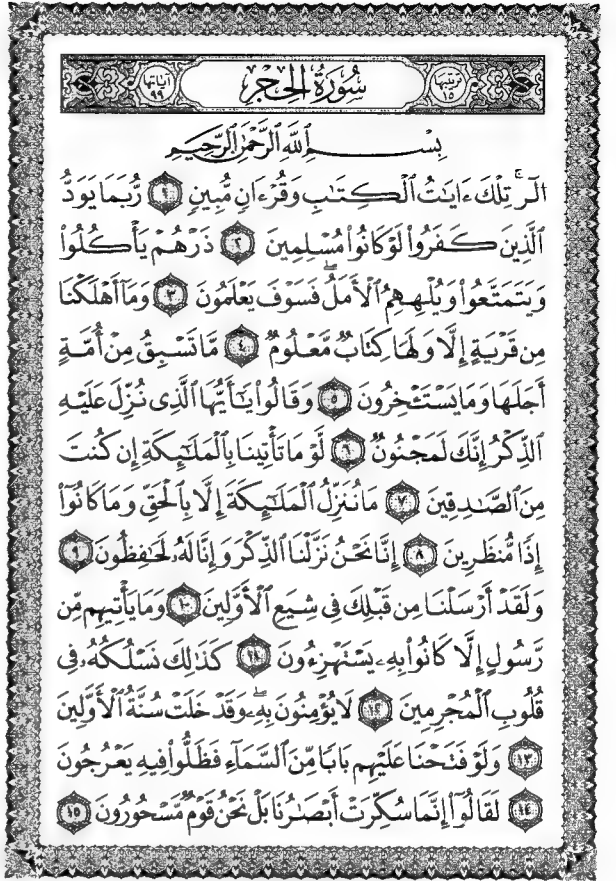 ترتيبها ١٥ سُورَةُ الحِجْرِ آياتها ٩٩
بِسْمِ اللَّهِ الرَّحْمَٰنِ الرَّحِيمِ
الٓر ۚ تِلْكَ ءَايَٰتُ ٱلْكِتَٰبِ وَقُرْءَانٍ مُّبِينٍ ١ رُّبَمَا يَوَدُّ
ٱلَّذِينَ كَفَرُوا۟ لَوْ كَانُوا۟ مُسْلِمِينَ ٢ ذَرْهُمْ يَأْكُلُوا۟
وَيَتَمَتَّعُوا۟ وَيُلْهِهِمُ ٱلْأَمَلُ ۖ فَسَوْفَ يَعْلَمُونَ ٣ وَمَآ أَهْلَكْنَا
مِن قَرْيَةٍ إِلَّا وَلَهَا كِتَابٌ مَّعْلُومٌ ٤ مَّا تَسْبِقُ مِنْ أُمَّةٍ
أَجَلَهَا وَمَا يَسْتَـْٔخِرُونَ ٥ وَقَالُوا۟ يَٰٓأَيُّهَا ٱلَّذِى نُزِّلَ عَلَيْهِ
ٱلذِّكْرُ إِنَّكَ لَمَجْنُونٌ ٦ لَّوْ مَا تَأْتِينَا بِٱلْمَلَٰٓئِكَةِ إِن كُنتَ
مِنَ ٱلصَّٰدِقِينَ ٧ مَا نُنَزِّلُ ٱلْمَلَٰٓئِكَةَ إِلَّا بِٱلْحَقِّ وَمَا كَانُوٓا۟
إِذًا مُّنظَرِينَ ٨ إِنَّا نَحْنُ نَزَّلْنَا ٱلذِّكْرَ وَإِنَّا لَهُۥ لَحَٰفِظُونَ ٩
وَلَقَدْ أَرْسَلْنَا مِن قَبْلِكَ فِى شِيَعِ ٱلْأَوَّلِينَ ١٠ وَمَا يَأْتِيهِم مِّن
رَّسُولٍ إِلَّا كَانُوا۟ بِهِۦ يَسْتَهْزِءُونَ ١١ كَذَٰلِكَ نَسْلُكُهُۥ فِى
قُلُوبِ ٱلْمُجْرِمِينَ ١٢ لَا يُؤْمِنُونَ بِهِۦ ۖ وَقَدْ خَلَتْ سُنَّةُ ٱلْأَوَّلِينَ
١٣ وَلَوْ فَتَحْنَا عَلَيْهِم بَابًا مِّنَ ٱلسَّمَآءِ فَظَلُّوا۟ فِيهِ يَعْرُجُونَ
١٤ لَقَالُوٓا۟ إِنَّمَا سُكِّرَتْ أَبْصَٰرُنَا بَلْ نَحْنُ قَوْمٌ مَّسْحُورُونَ ١٥